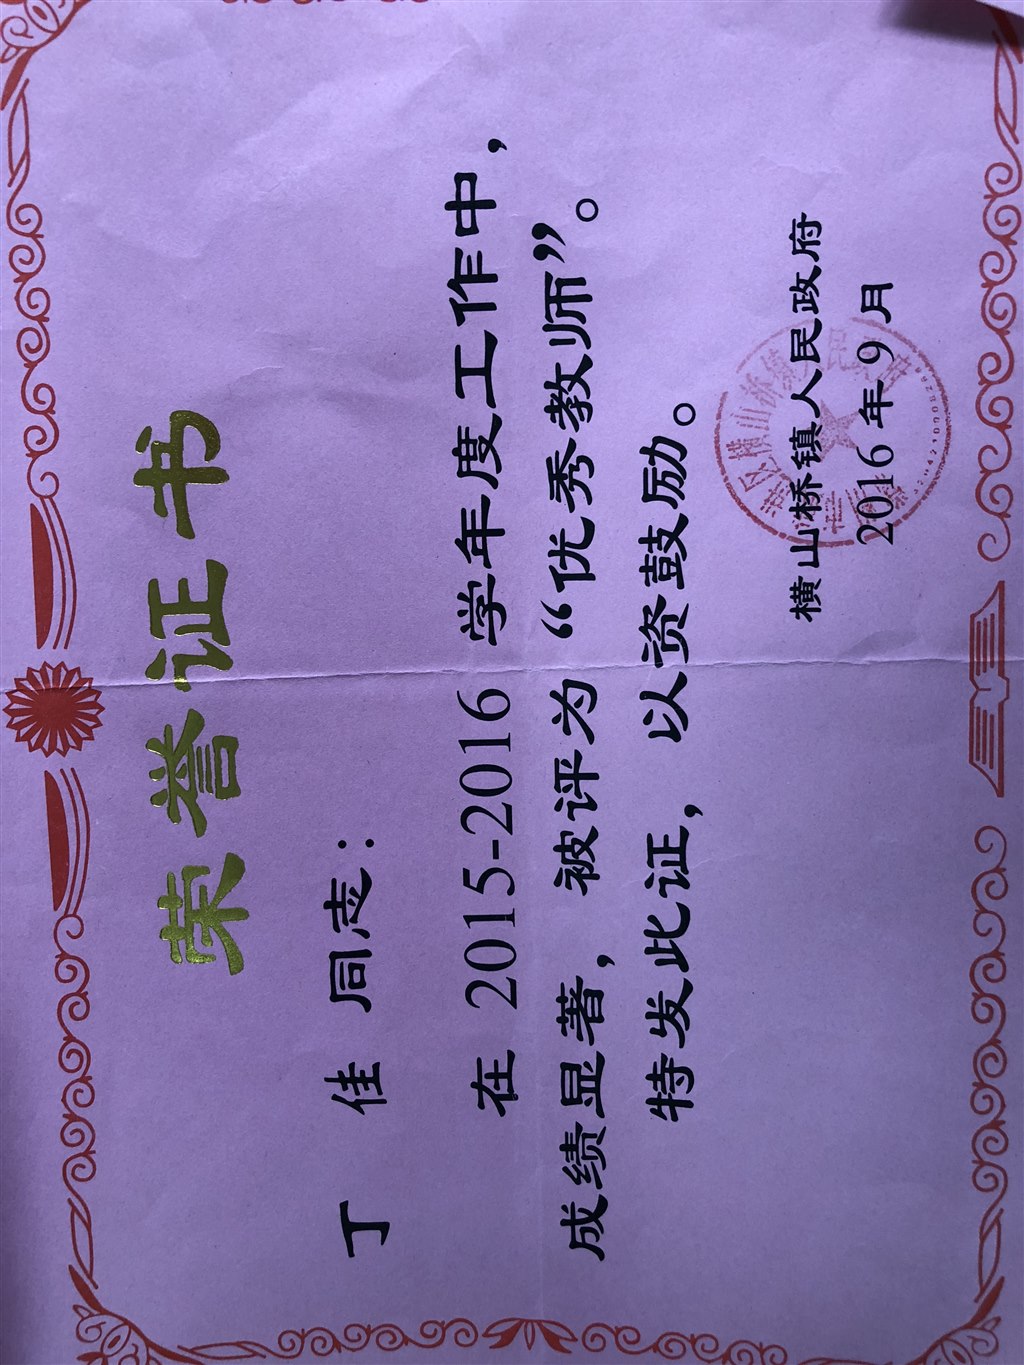 荣誉证书
丁 佳 同志：
在 2015-2016 学年度工作中，
成绩显著，被评为“优秀教师”。
特发此证，以资鼓励。
横山桥镇人民政府
2016 年 9 月